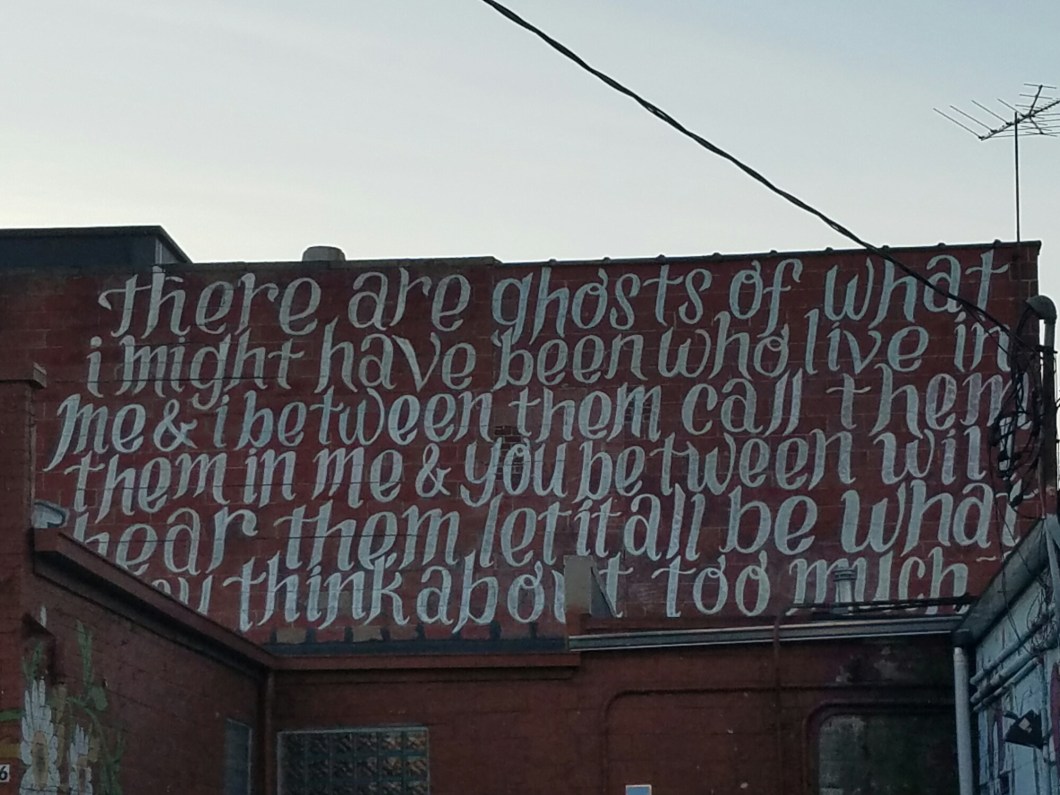 there are ghosts of what
i might have been who live in
me & i between them call them
them in me & you between will
hear them let it all be what
you think about too much~
6